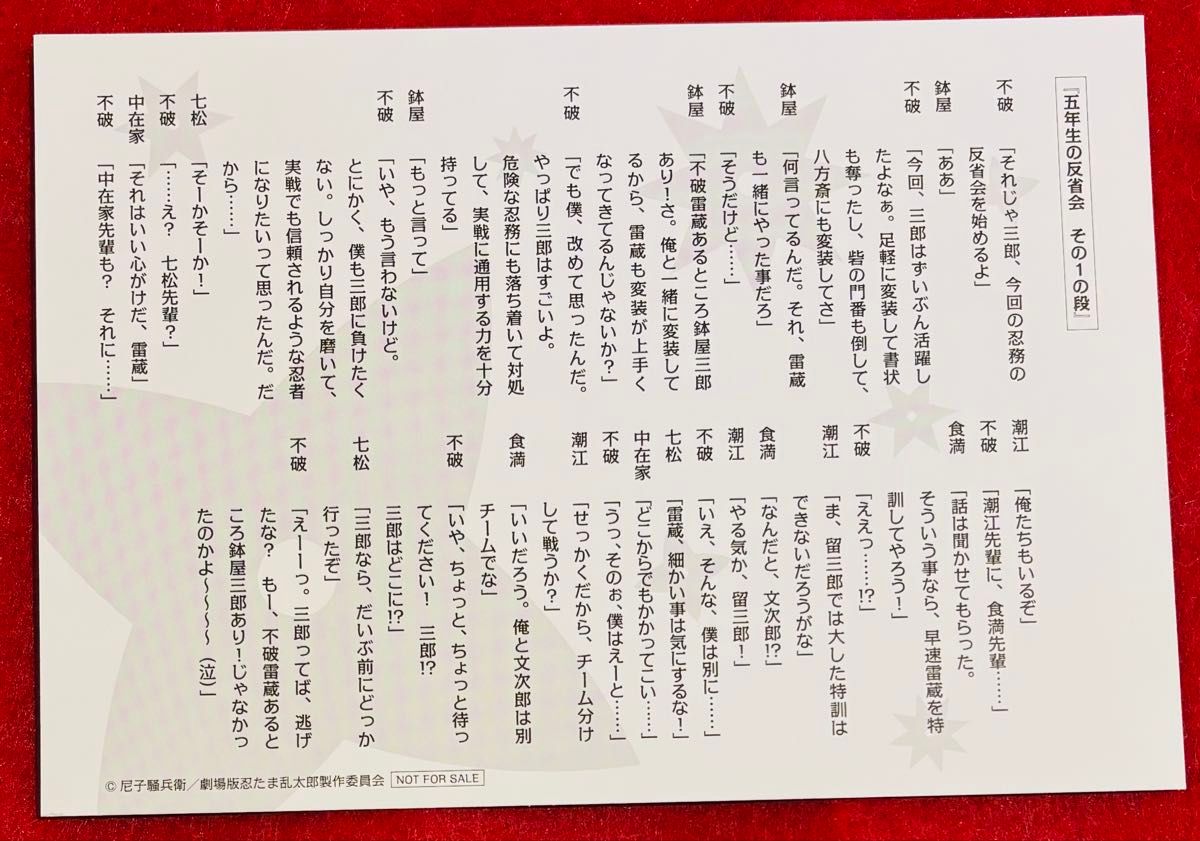 『五年生の反省会　その１の段』
不破　「それじゃ三郎、今回の忍務の
反省会を始めるよ」
鉢屋　「ああ」
不破　「今回、三郎はずいぶん活躍し
たよなぁ。足軽に変装して書状
も奪ったし、砦の門番も倒して、
八方斎にも変装してさ」
鉢屋　「何言ってるんだ。それ、雷蔵
も一緒にやった事だろ」
不破　「そうだけど……」
鉢屋　「不破雷蔵あるところ鉢屋三郎
あり！さ。俺と一緒に変装して
るから、雷蔵も変装が上手く
なってきてるんじゃないか？」
不破　「でも僕、改めて思ったんだ。
やっぱり三郎はすごいよ。
危険な忍務にも落ち着いて対処
して、実戦に通用する力を十分
持ってる」
鉢屋　「もっと言って」
不破　「いや、もう言わないけど。
とにかく、僕も三郎に負けたく
ない。しっかり自分を磨いて、
実戦でも信頼されるような忍者
になりたいって思ったんだ。だ
から……」
七松　「そーかそーか！」
不破　「……え？　七松先輩？」
中在家　「それはいい心がけだ、雷蔵」
不破　「中在家先輩も？　それに……」
潮江　「俺たちもいるぞ」
不破　「潮江先輩に、食満先輩……」
食満　「話は聞かせてもらった。
そういう事なら、早速雷蔵を特
訓してやろう！」
不破　「ええっ……!?」
潮江　「ま、留三郎では大した特訓は
できないだろうがな」
食満　「なんだと、文次郎!?」
潮江　「やる気か、留三郎！」
不破　「いえ、そんな、僕は別に……」
七松　「雷蔵、細かい事は気にするな！」
中在家　「どこからでもかかってこい……」
不破　「うっ、そのぉ、僕はえーと……」
潮江　「せっかくだから、チーム分け
して戦うか？」
食満　「いいだろう。俺と文次郎は別
チームでな」
不破　「いや、ちょっと、ちょっと待っ
てください！　三郎!?
三郎はどこに!?」
七松　「三郎なら、だいぶ前にどっか
行ったぞ」
不破　「えーーっ。三郎ってば、逃げ
たな？　もー、不破雷蔵あると
ころ鉢屋三郎あり！じゃなかっ
たのかよ～～～～（泣）」
© 尼子騒兵衛／劇場版忍たま乱太郎製作委員会 NOT FOR SALE